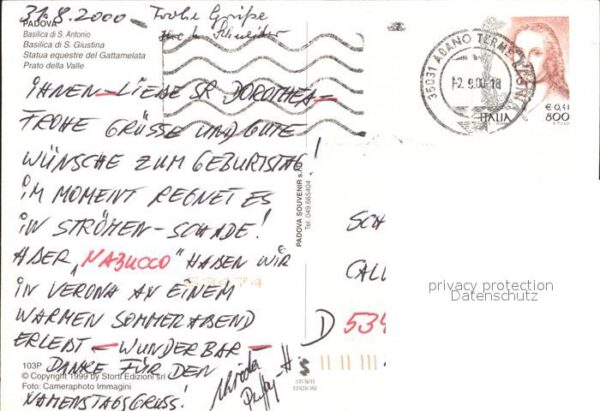 31.8.2000 - Frohe Grüße
PADOVA
Basilica di S. Antonio
Basilica di S. Giustina
Statua equestre del Gattamelata
Prato della Valle
IHNEN - LIEBE SR. DOROTHEA -
FROHE GRÜSSE UND GUTE
WÜNSCHE ZUM GEBURTSTAG!
IM MOMENT REGNET ES
IN STRÖMEN - SCHADE!
ABER „NABUCCO" HABEN WIR
IN VERONA AN EINEM
WARMEN SOMMERABEND
ERLEBT - WUNDERBAR -
DANKE FÜR DEN
NAMENSTAGSGRUSS!
103P
© Copyright 1999 by Storti Edizioni srl
Foto: Cameraphoto Immagini
PADOVA SOUVENIR s.r.l.
Tel. 049.665404
STORTI
EDIZIONI
35031 ABANO TERME
-2.9.00-18
ITALIA
€ 0,41
800
SCH
CALL
D 534
privacy protection
Datenschutz